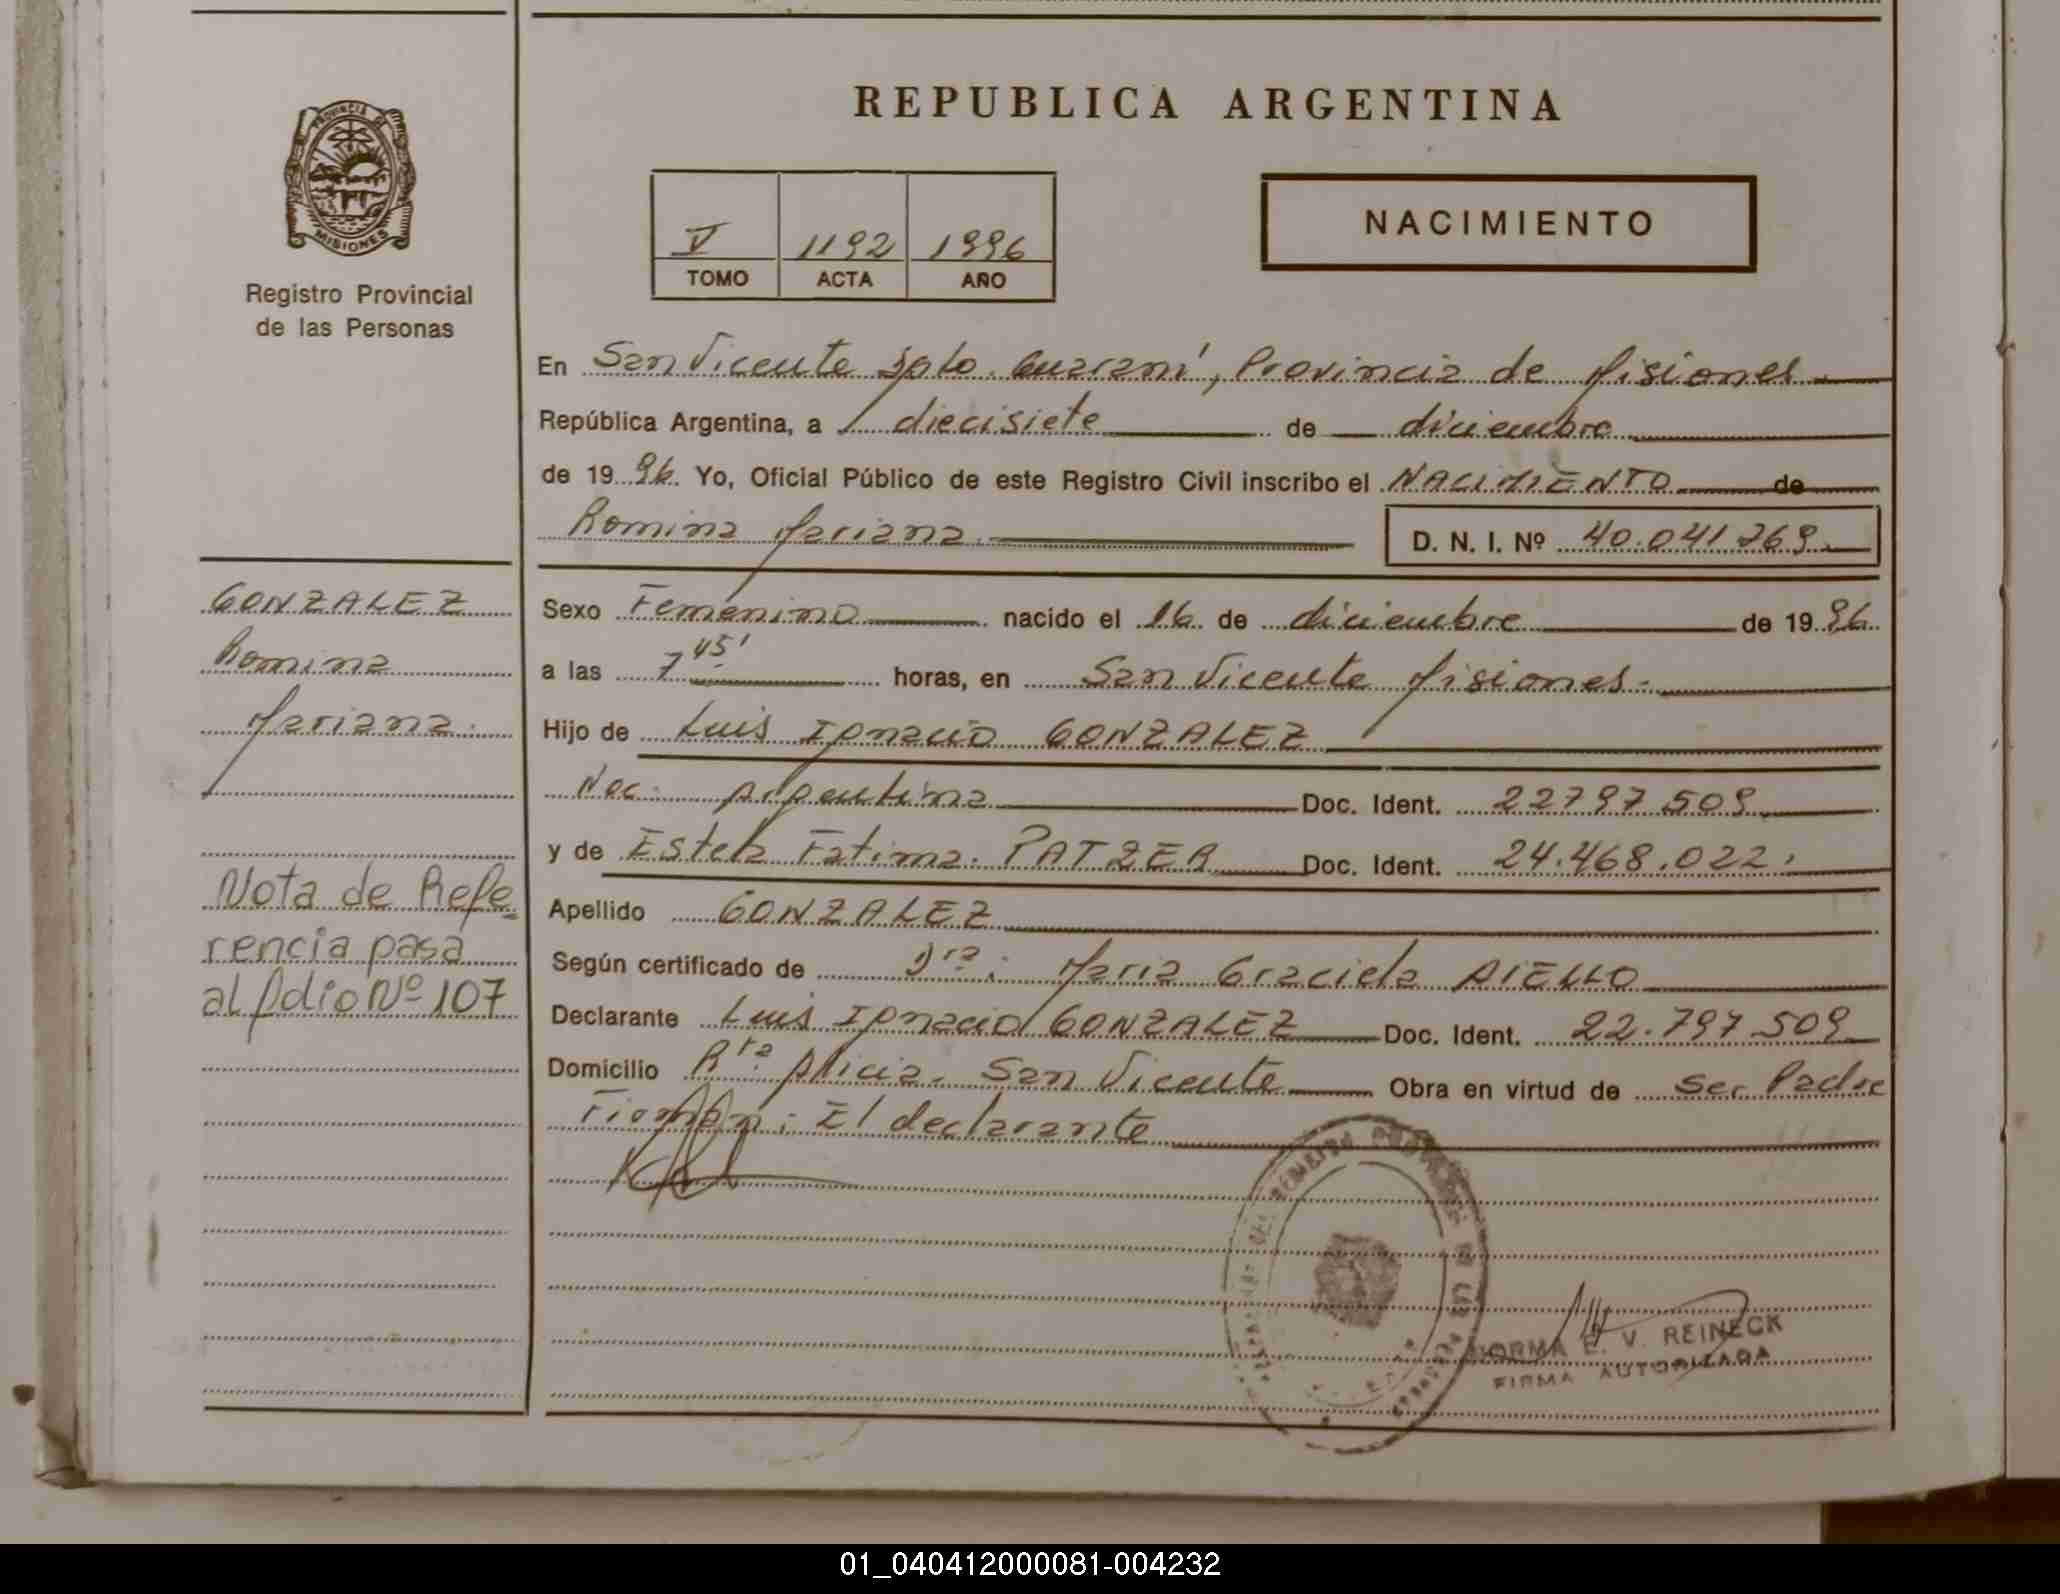 REPUBLICA ARGENTINA
PROVINCIA DE
MISIONES
Registro Provincial
de las Personas
V 1192 1996
TOMO ACTA AÑO
NACIMIENTO
En San Vicente Dpto. Guaraní, Provincia de Misiones
República Argentina, a diecisiete de diciembre
de 1996. Yo, Oficial Público de este Registro Civil inscribo el NACIMIENTO de
Romina Mariana. D. N. I. Nº 40.041.269
GONZALEZ
Romina
Mariana.
Sexo Femenino nacido el 16 de diciembre de 1996
a las 7 45' horas, en San Vicente Misiones.
Hijo de Luis Ignacio GONZALEZ
Nac. Argentina Doc. Ident. 22797.509
y de Estela Fatima. PATZER Doc. Ident. 24.468.022.
Nota de Refe-
rencia pasa
al folio Nº 107
Apellido GONZALEZ
Según certificado de Dra. Maria Graciela AIELLO
Declarante Luis Ignacio GONZALEZ Doc. Ident. 22.797.509
Domicilio Rta. Alicia. San Vicente Obra en virtud de Ser Padre
Firman: El declarante
NORMA E. V. REINECK
FIRMA AUTORIZADA
01_040412000081-004232